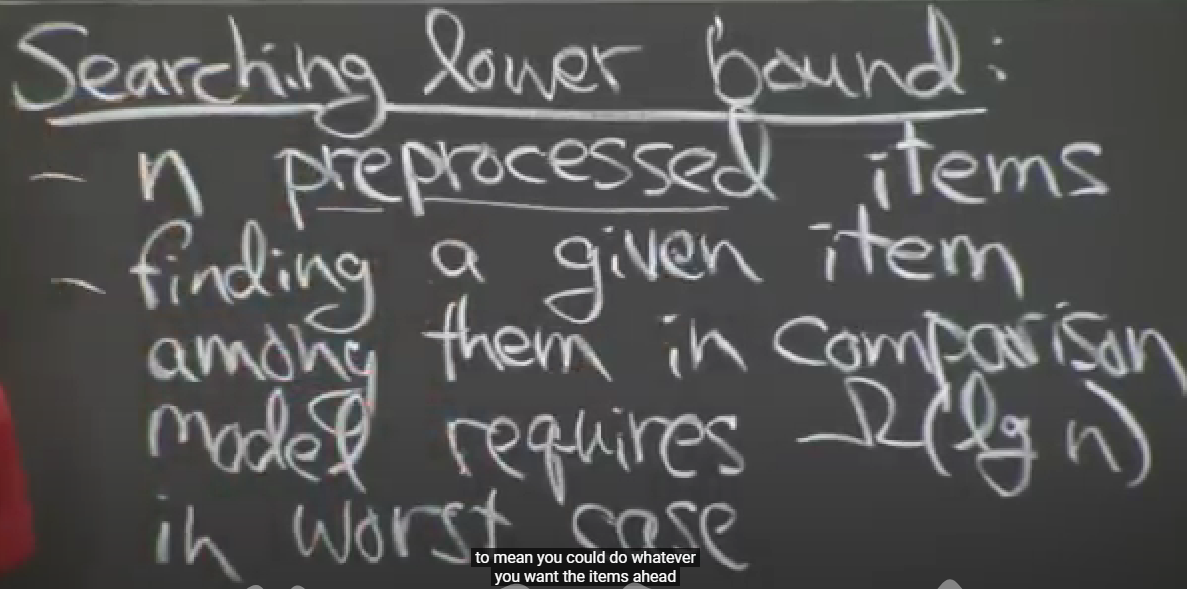 Searching lower bound:
- n preprocessed items
- finding a given item
among them in comparison
model requires Ω(lg n)
in worst case
to mean you could do whatever
you want the items ahead